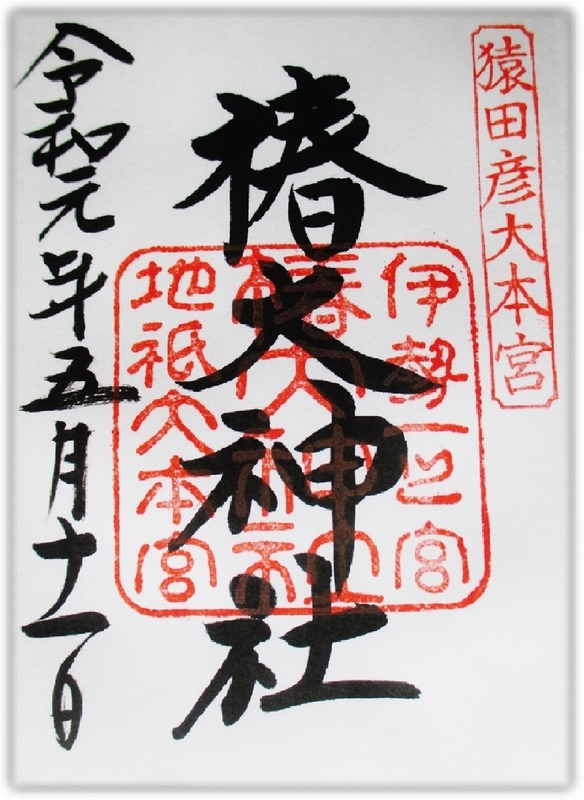 猿田彦大本宮
伊勢一之宮
椿大神社
地祇大本宮
椿大神社
令和元年五月十一日